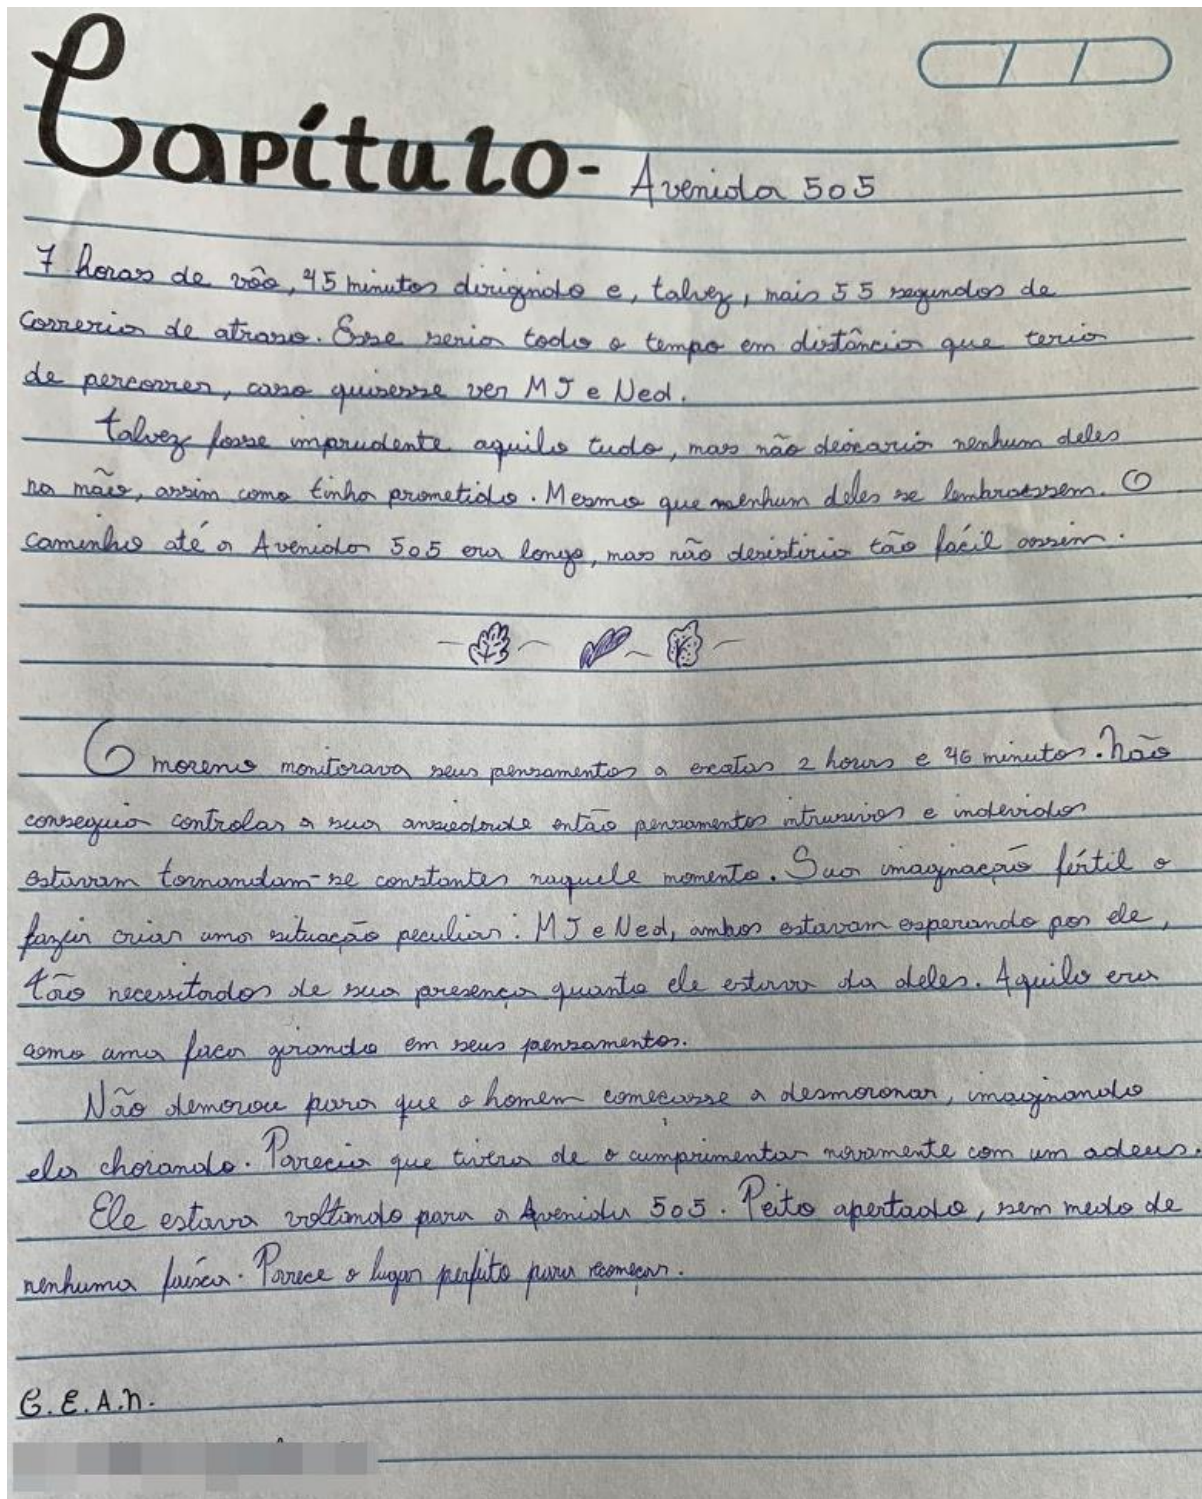 Capítulo - Avenida 505
7 horas de vôo, 45 minutos dirigindo e, talvez, mais 55 segundos de
correria de atraso. Esse seria todo o tempo em distância que teria
de percorrer, caso quisesse ver MJ e Ned.
talvez fosse imprudente aquilo tudo, mas não deixaria nenhum deles
na mão, assim como tinha prometido. Mesmo que nenhum deles se lembrassem. O
caminho até a Avenida 505 era longo, mas não desistiria tão fácil assim.
O moreno monitorava seus pensamentos a exatas 2 hours e 46 minutos. Não
conseguia controlar a sua ansiedade então pensamentos intrusivos e indevidos
estavam tornandam-se constantes naquele momento. Sua imaginação fértil o
fazia criar uma situação peculiar: MJ e Ned, ambos estavam esperando por ele,
tão necessitados de sua presença quanto ele estava da deles. Aquilo era
como uma faca girando em seus pensamentos.
Não demorou para que o homem começasse a desmoronar, imaginando
ela chorando. Parecia que tivera de o cumprimentar novamente com um adeus.
Ele estava voltando para a Avenida 505. Peito apertado, sem medo de
nenhuma faísca. Parece o lugar perfeito para recomeçar.
G.E.A.N.